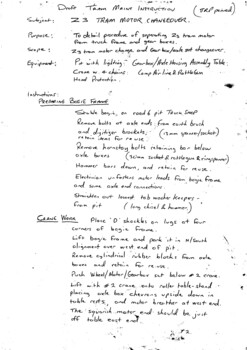 Draft Tram Maint Instruction
Subject: Z3 TRAM MOTOR CHANGEOVER.
Purpose: To detail procedure of separating Z3 tram motor
from truck frame and gear boxes.
Scope: Z3 tram motor change and Gear box/axle set changeover.
Equipment: Pit with lighting. Gearbox/Axle Housing Assembly Table.
Crane w. 4 chains. Comp Air line & Rattlegun
Head Protection.
Instructions:
PREPARING BOGIE FRAME
Stable bogie, on road 6 pit TRUCK SHOP
Remove bolts at axle ends, from earth brush
and digitiger brackets, (13mm spanner/socket)
retain items for re-use.
Remove hornstay bolts retaining bar below
axle boxes (30mm socket & rattlegun & ring spanner)
Hammer bars down, and retain for re-use.
Electrician unfastens motor leads from bogie frame
and some axle end connections.
Shackles out lowest rod master keeper
from pit (long chisel & hammer).
CRANE WORK Place 'D' shackles on lugs at four
corners of bogie frame.
Lift bogie frame and park it in N/South
alignment over west end of pit.
Remove cylindrical rubber blocks from axle
boxes and retain for re-use.
Push Wheel/Motor/Gearbox set below #2 crane.
Lift with #2 crane onto roller table-stand
placing axle box chevrons upside down in
table rests, and motor breather at east end.
The squirrel motor end should be just
off table east end.